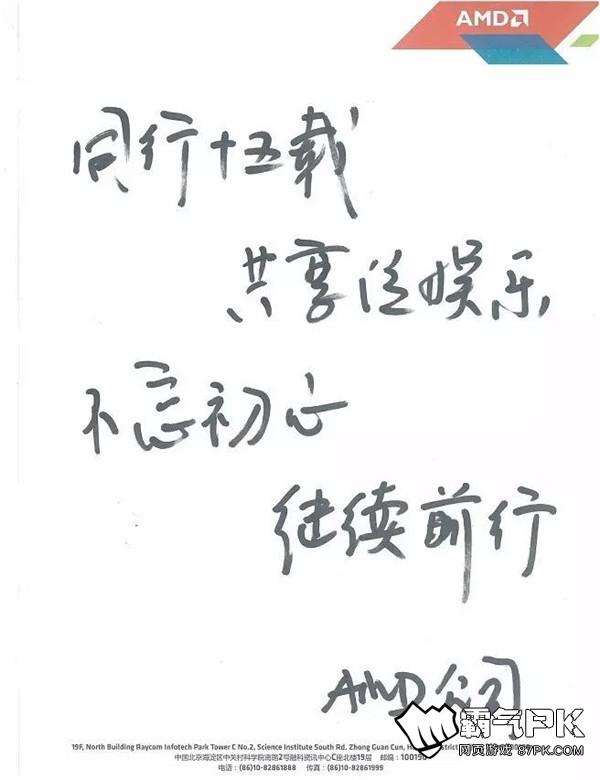 AMD
同行十五载
共享泛娱乐
不忘初心
继续前行
AMD公司
霸气PK
网页游戏·87PK.COM
19F, North Building Raycom Infotech Park Tower C No.2, Science Institute South Rd. Zhong Guan Cun,
中国北京海淀区中关村科学院南路2号融科资讯中心C座北楼19层 邮编：100190
电话：(86)10-82861888 传真：(86)10-82861999